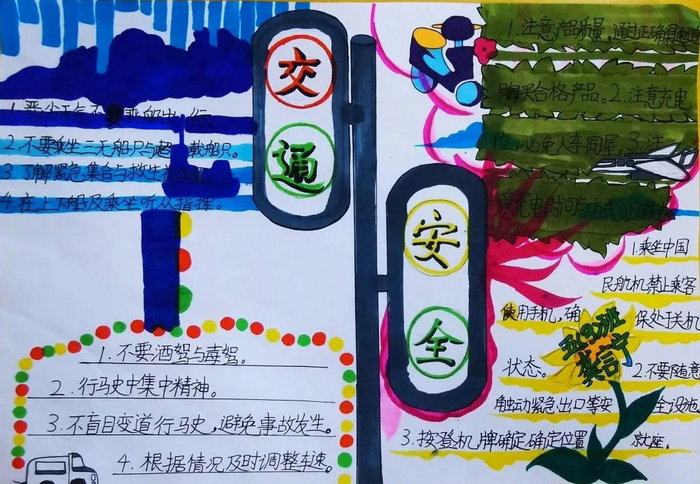 交
通
安
全
1.恶劣天气不要乘船出行
2.不要乘坐三无船只与超载船只。
3.了解紧急集合与救生
4.在上下船及乘坐听从指挥。
1.不要酒驾与毒驾。
2.行马史中集中精神。
3.不盲目变道行马史,避免事故发生。
4.根据情况及时调整车速。
1.注意产品质量,通过正确渠道
购买合格产品。2.注意充电
位,必免人车同屋,3.注
意充电时间与方式
1.乘坐中国
民航机禁止乘客
使用手机,确 保处于关机
状态。 2.不要随意
触动紧急出口等安 全设施
3.按登机牌确定确定位置 就座。
五(9)班